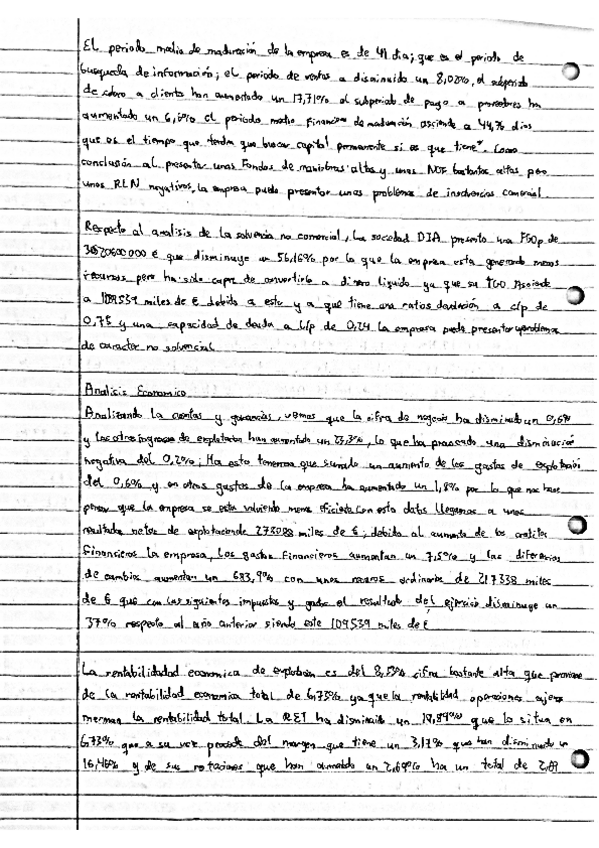 El periodo medio de maduración de la empresa es de 41 dias; que es el periodo de
busqueda de información; el periodo de ventas a disminuido un 8,020%, el subperiodo
de cobro a clientes han aumentado un 17,71% el subperiodo de pago a proveedores ha
aumentado un 6,6% el periodo medio financiero de maduración asciende a 44,76 dias
que es el tiempo que tendra que buscar capital permanente si es que tiene. Como
conclusión al presentar unos Fondos de maniobras altos y unas NOF bastantes altas, pero
unos RLN negativos, la empresa puede presentar unos problemas de insolvencias comercial
Respecto al analisis de la solvencia no comercial, La sociedad DIA presenta una FGOp de
€ que disminuye un 56,16% por lo que la empresa esta generando menos
recursos pero ha sido capaz de convertirlo a dinero liquido ya que su TGO Asciende
a 109539 miles de € debido a esto y a que tiene una ratios devolución a c/p de
0,75 y una capacidad de deuda a L/p de 0,24 la empresa puede presentar problemas
de caracter no solvencial
Analisis Economico
Analizando la cuentas y ganancias, vemos que la cifra de negocio ha disminuido un 0,6%
y los otros ingresos de explotacion han aumentado un 23,3%, lo que ha provocado una disminución
negativa del 0,2%; Ha esto tenemos que sumarle un aumento de los gastos de explotación
del 0,6% y en otros gastos de la empresa ha aumentado un 1,8% por lo que nos hace
pensar que la empresa se esta volviendo menos eficiente con esto datos llegamos a unos
resultados netos de explotacion de 273088 miles de €; debido al aumento de los creditos
financieros la empresa, Los gastos financieros aumentan un 7,5% y las diferencias
de cambios aumentan un 683,9% con unos recursos ordinarios de 217338 miles
de € que con los siguientes impuestos y gastos el resultado del ejercicio disminuye un
37% respecto al año anterior siendo este 109539 miles de €
La rentabilidad economica de explotacion es del 8,53% cifra bastante alta que proviene
de la rentabilidad economica total de 6,73% ya que la rentabilidad operaciones ajenas
merman la rentabilidad total. La RET ha disminuido un 14,89% que lo situa en
6,73% que a su vez procede del margen que tiene un 3,17% que han disminuido un
16,46% y de sus rotaciones que han aumentado un 2,69% ha un total de 2,89